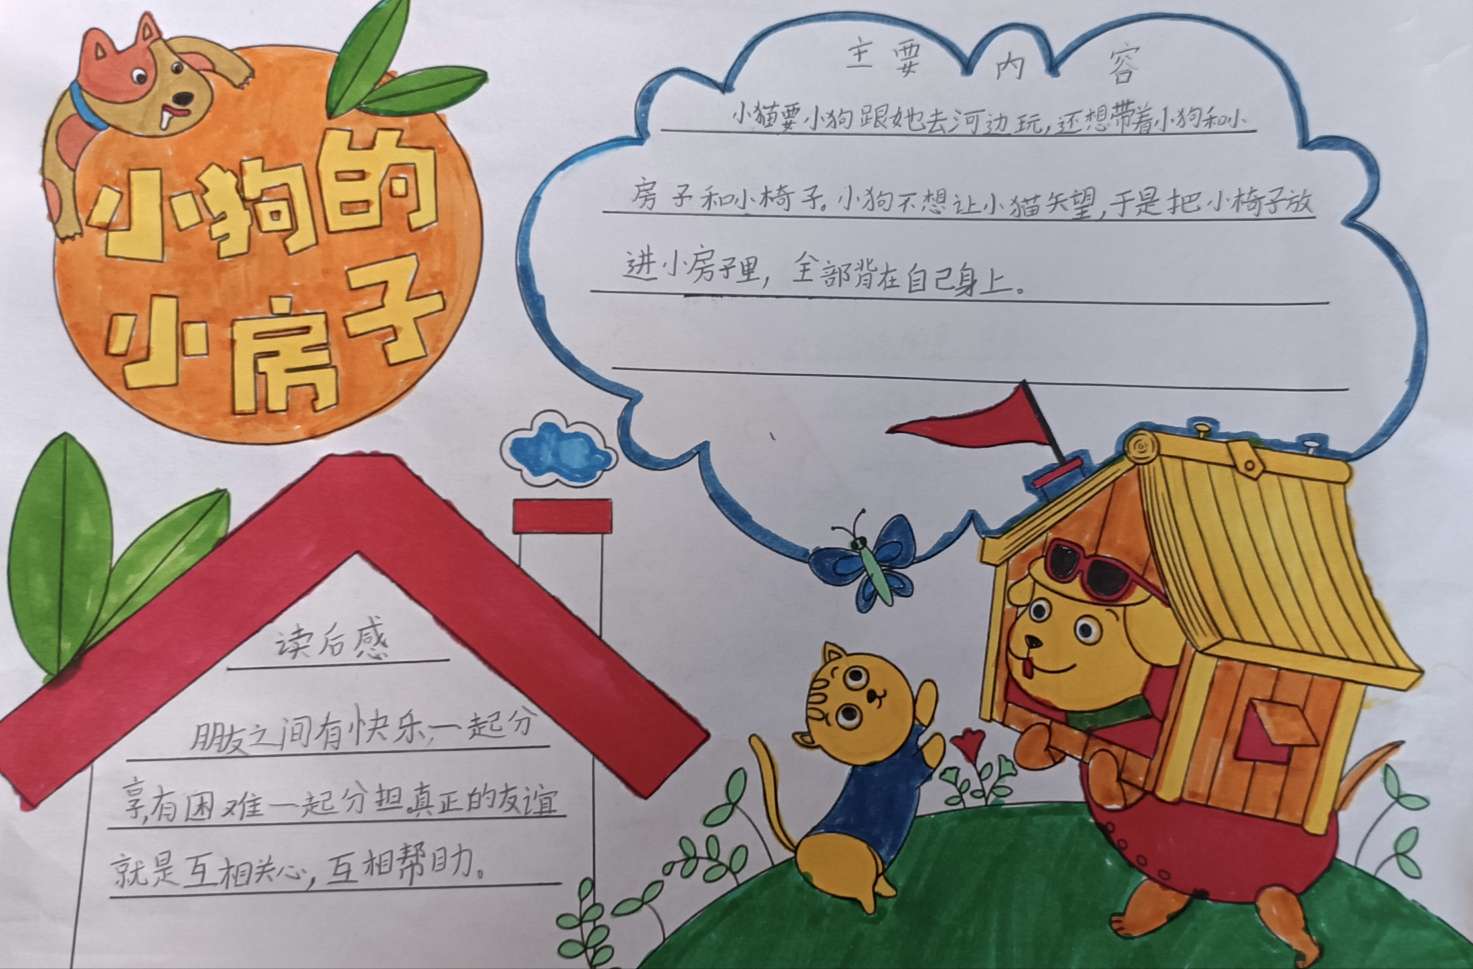 小狗的
小房子
主要内容
小猫要小狗跟她去河边玩,还想带着小狗和小
房子和小椅子。小狗不想让小猫失望,于是把小椅子放
进小房子里，全部背在自己身上。
读后感
朋友之间有快乐,一起分
享,有困难一起分担真正的友谊
就是互相关心,互相帮助。